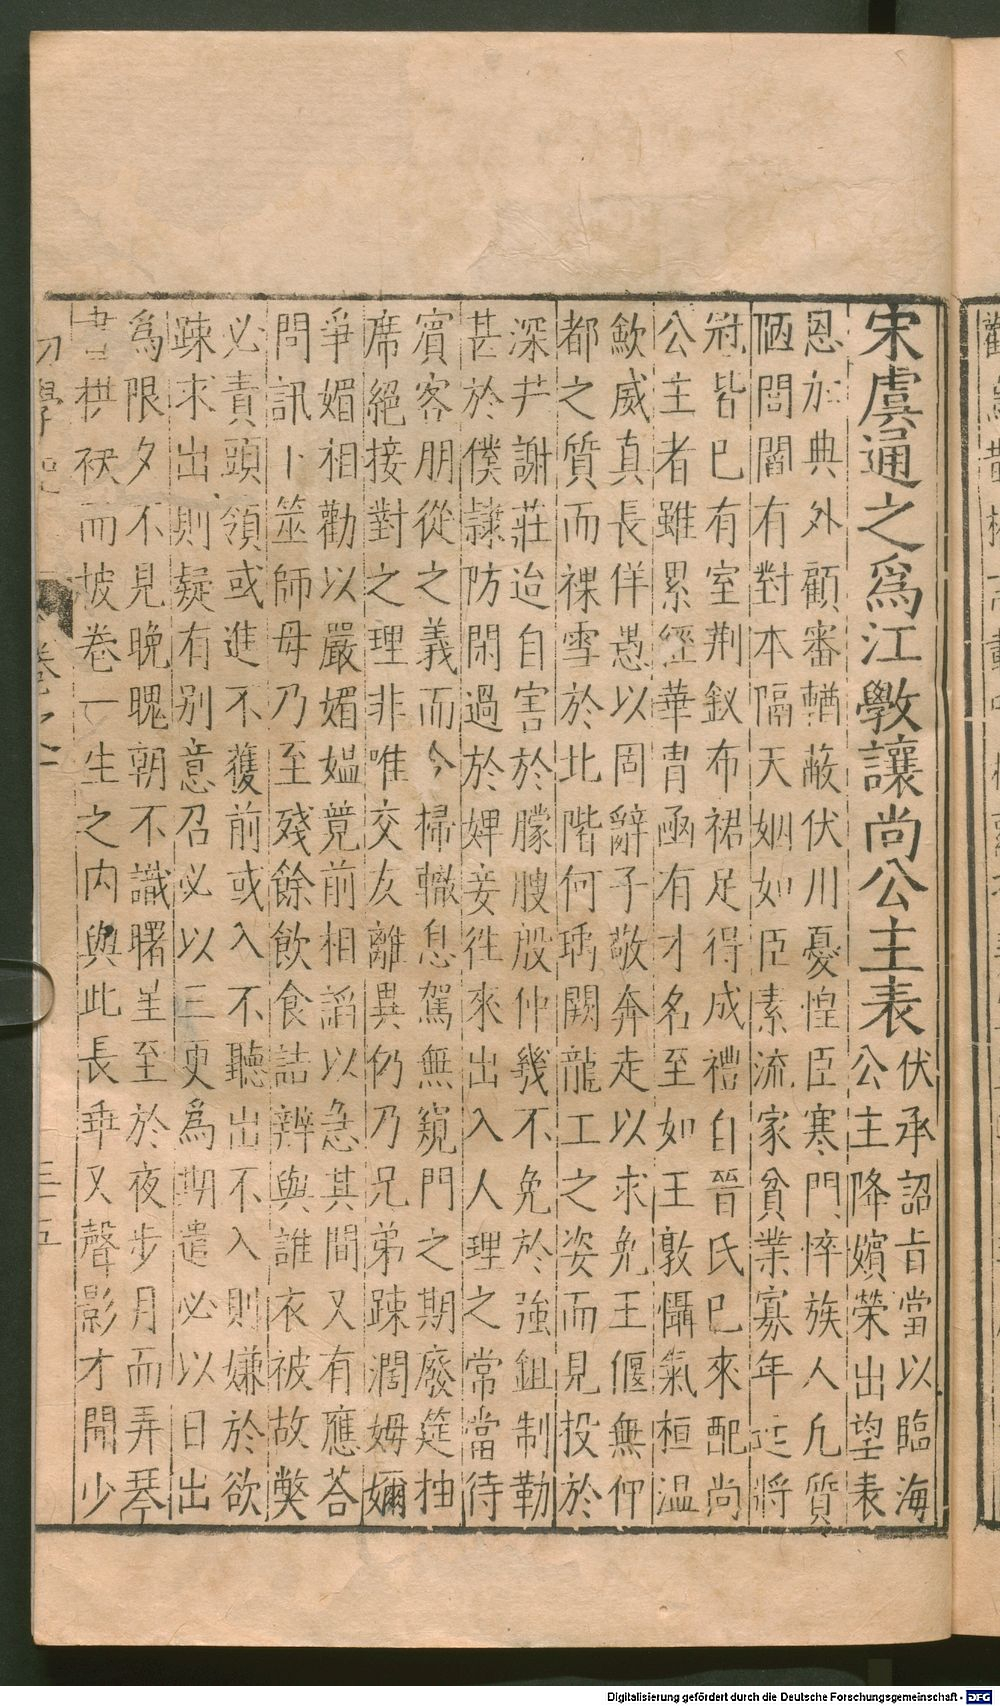 宋虞通之爲江斆讓尚公主表
伏承詔旨當以臨海
公主降嬪榮出望表
恩加典外顧審輶蔽伏川憂惶臣寒門悴族人凢質
陋閭閻有對本隔天姻如臣素流家貧業寡年 將
冠皆巳有室荆釵布裙足得成禮自晉氏巳來配尚
公主者雖累經華胄亟有才名至如王敦懾氣桓温
歛威真長佯愚以固辭子敬奔走以求免王偃無仰
都之質而裸雪於北階何瑀闕龍工之姿而見投於
深井謝莊迨自害於朦瞍殷仲幾不免於強鉏制勒
甚於僕隷防閑過於婢妾徃來出入人理之常當待
賓客朋從之義而今掃轍息駕無窺門之期廢筵抽
席絕接對之理非唯交友離異仍乃兄弟踈濶姆嬭
爭媚相勸以嚴媚媼競前相謟以急其間又有應荅
問訊卜筮師母乃至殘餘飲食詰辨與誰衣被故弊
必責頭領或進不獲前或入不聽出不入則嫌於欲
踈求出則疑有别意召必以三更爲期遣必以日出
爲限夕不見晩魄朝不識曙星至於夜步月而弄琴
晝拱袂而披卷一生之内與此長乖又聲影才聞少
初學記 卷之十 三十五
Digitalisierung gefördert durch die Deutsche Forschungsgemeinschaft - DFG